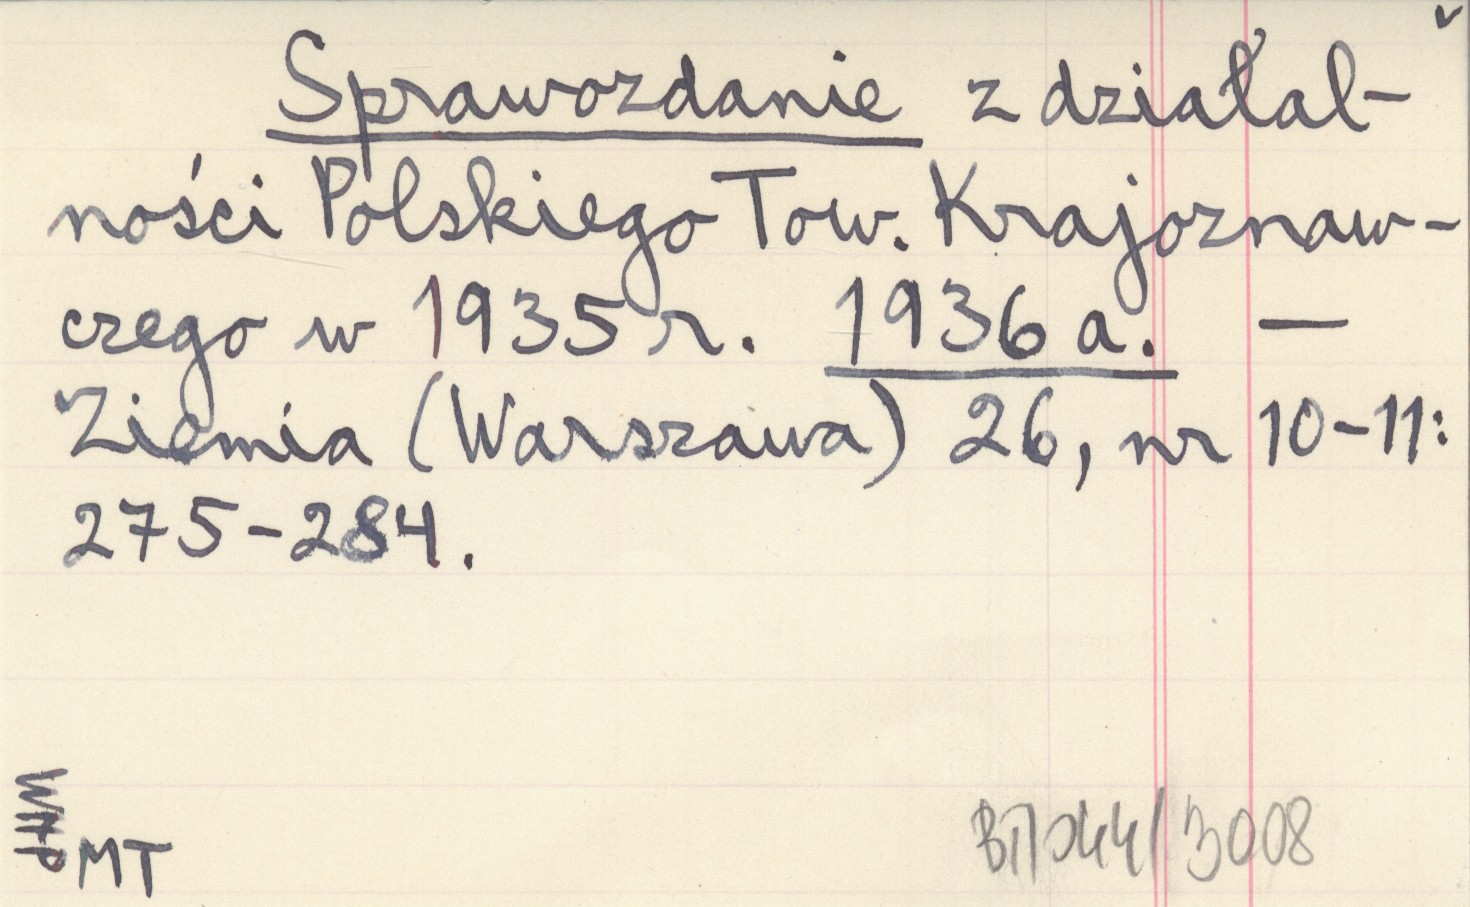 Sprawozdanie z działal-
ności Polskiego Tow. Krajoznaw-
czego w 1935 r. 1936 a. —
Ziemia (Warszawa) 26, nr 10-11:
275-284.
MT
3008